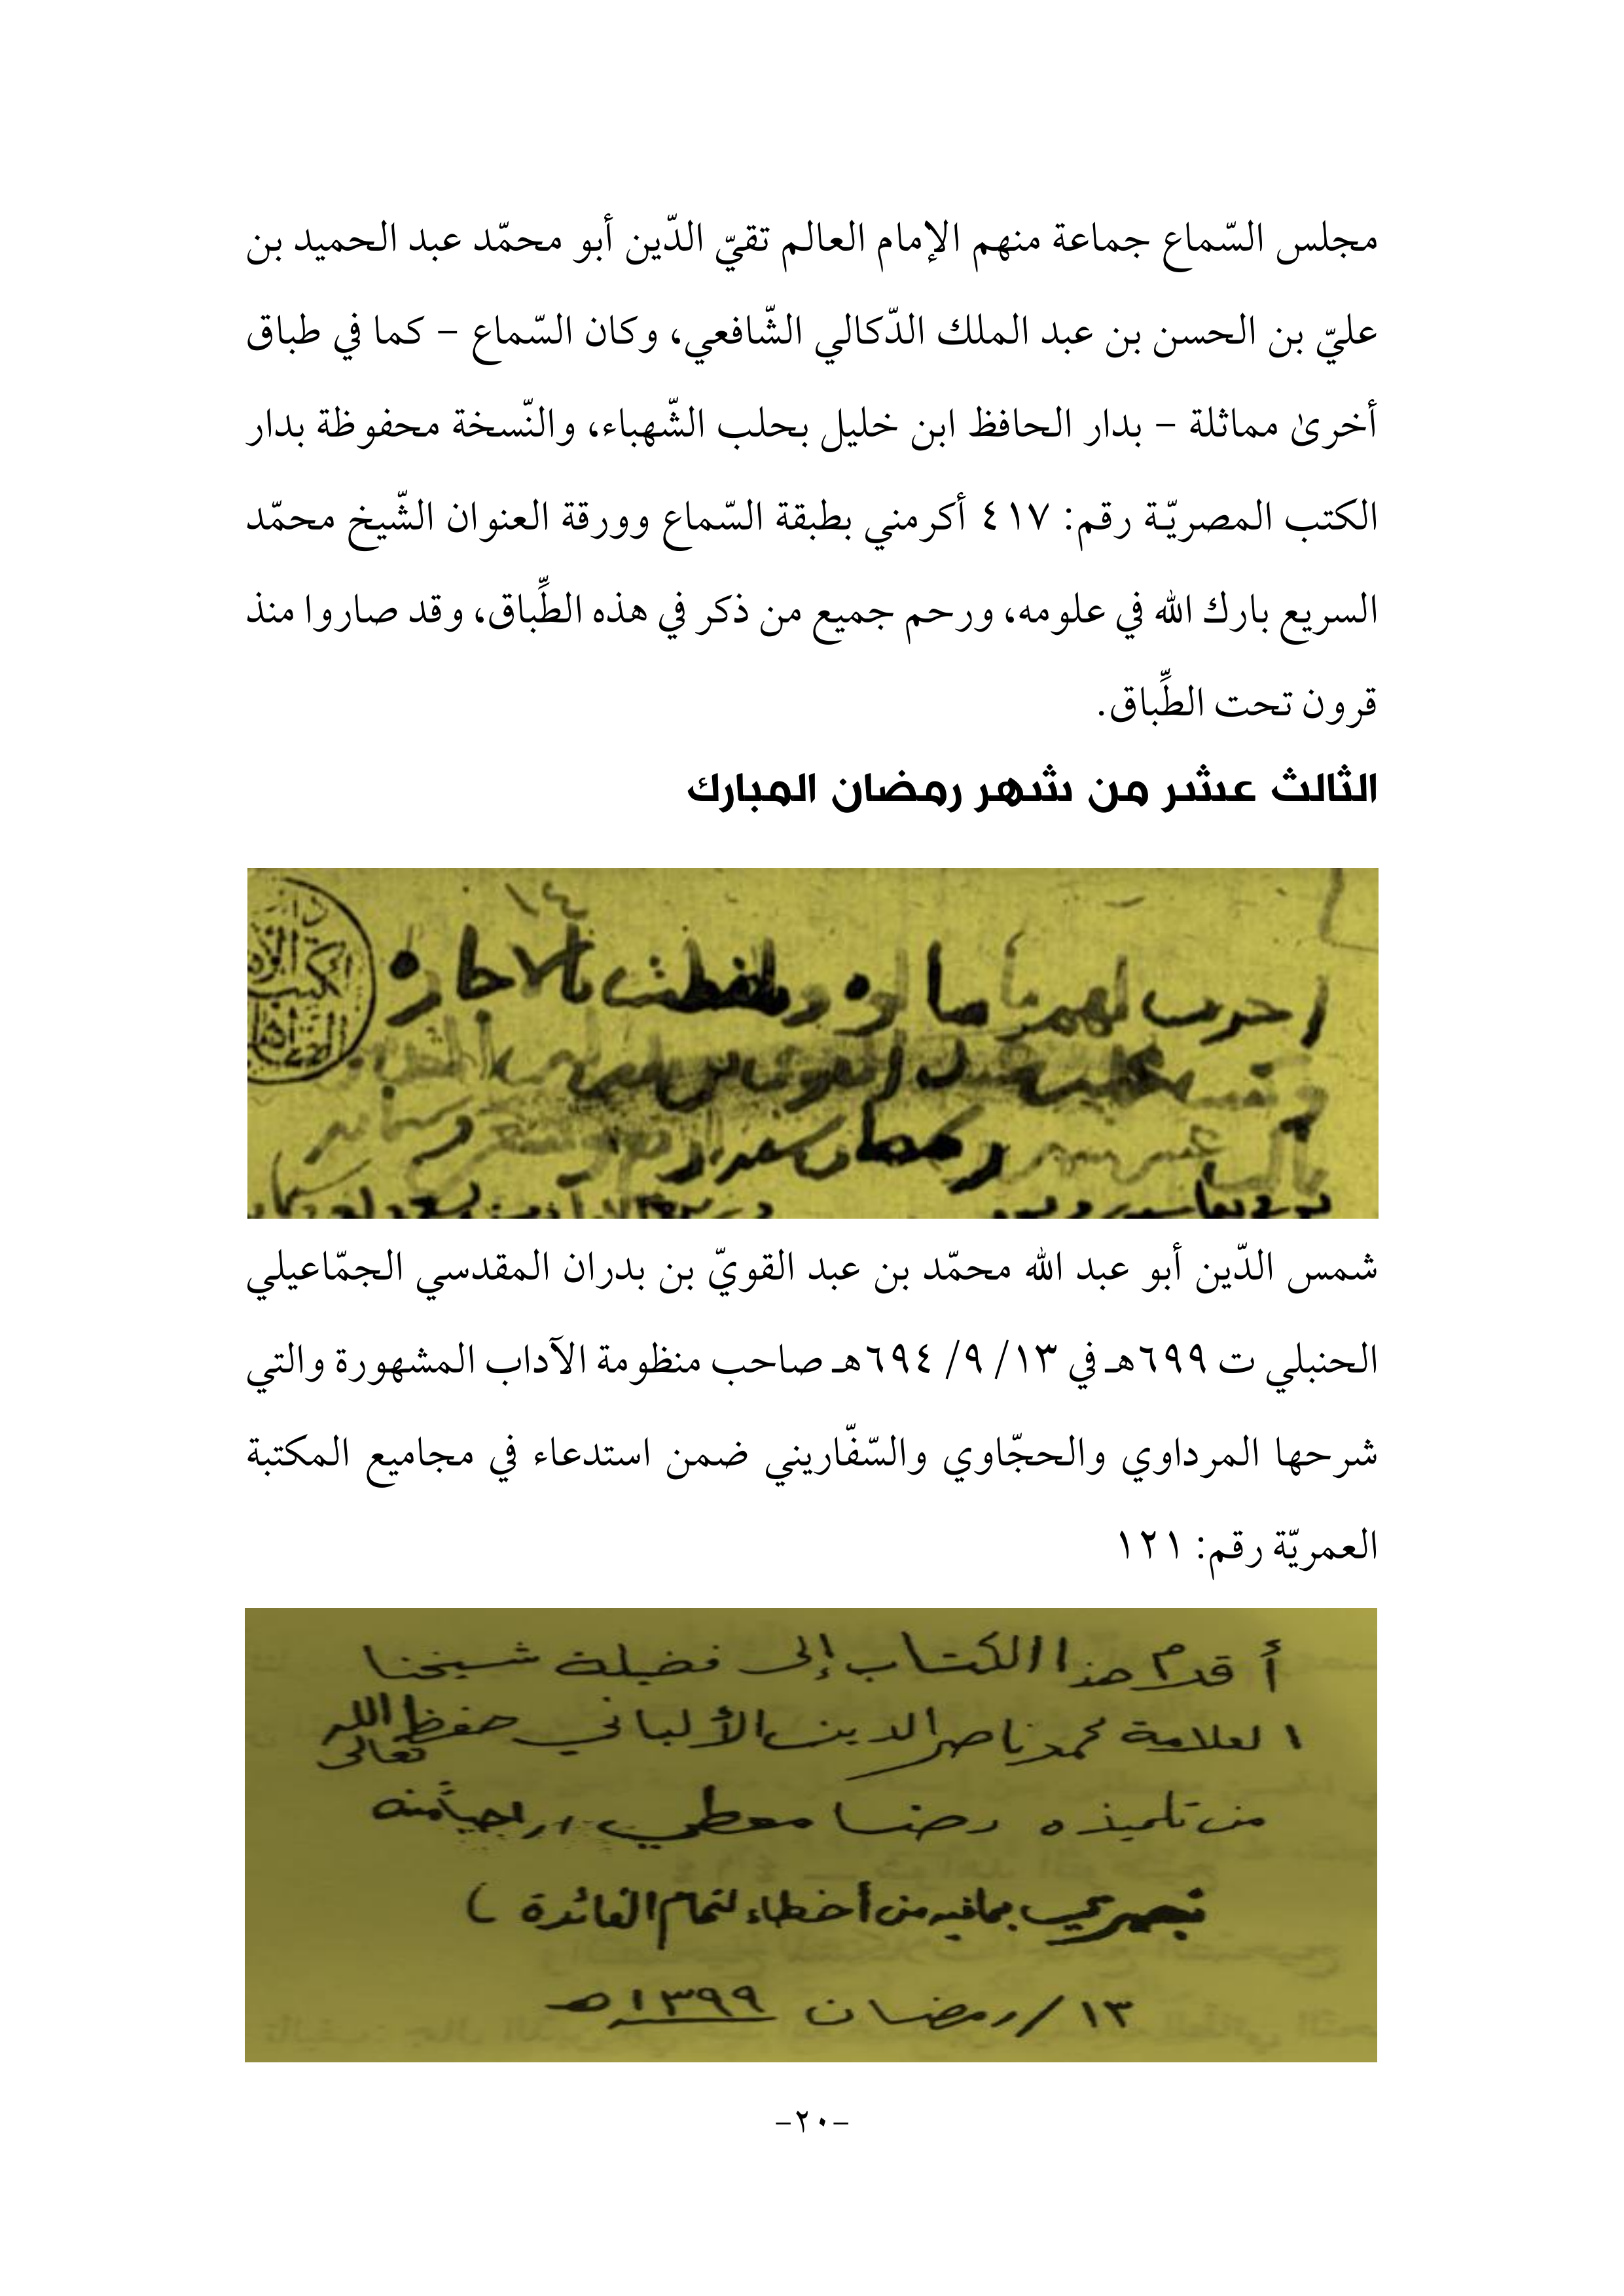 مجلس السّماع جماعة منهم الإمام العالم تقيّ الدّين أبو محمّد عبد الحميد بن
عليّ بن الحسن بن عبد الملك الدّكالي الشّافعي، وكان السّماع – كما في طباق
أخرىٰ مماثلة – بدار الحافظ ابن خليل بحلب الشّهباء، والنّسخة محفوظة بدار
الكتب المصريّة رقم: ٤١٧ أكرمني بطبقة السّماع وورقة العنوان الشّيخ محمّد
السريع بارك الله في علومه، ورحم جميع من ذكر في هذه الطِّباق، وقد صاروا منذ
قرون تحت الطِّباق.
الثالث عشر من شهر رمضان المبارك
شمس الدّين أبو عبد الله محمّد بن عبد القويّ بن بدران المقدسي الجمّاعيلي
الحنبلي ت ٦٩٩هـ في ١٣/ ٩/ ٦٩٤هـ صاحب منظومة الآداب المشهورة والتي
شرحها المرداوي والحجّاوي والسّفّاريني ضمن استدعاء في مجاميع المكتبة
العمريّة رقم: ١٢١
أقدم هذا الكتاب إلى فضيلة شيخنا
العلامة محمد ناصر الدين الألباني حفظه الله تعالى
من تلميذه رضا معطي راجياً منه
تبصيري بمافيه من أخطاء لتمام الفائدة)
١٣/رمضان ١٣٩٩هـ
-٢٠-